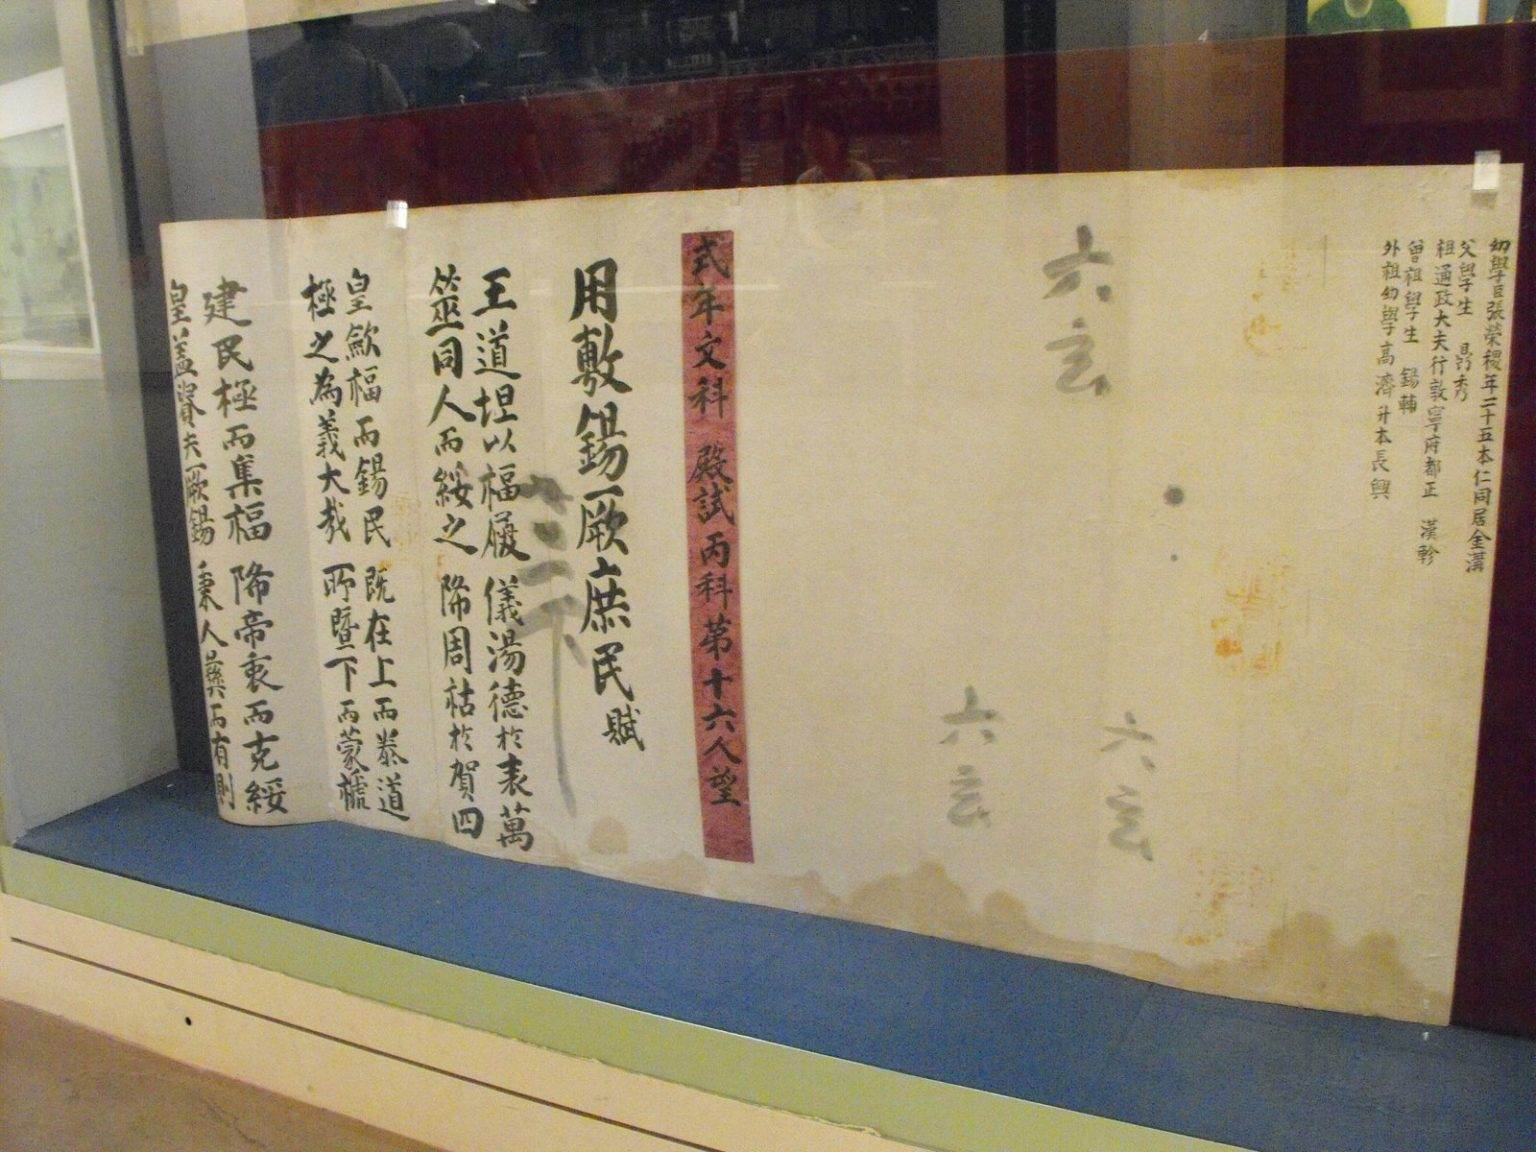 幼學臣張榮稷年二十五本仁同居金溝
父學生 昌秀
祖通政大夫行敦寧府都正 漢軫
曾祖學生 錫輔
外祖幼學高濟升本長興
六玄
六玄
六玄
式年文科 殿試丙科第十六人望
用敷錫厥庶民賦
三下
王道坦以福履 儀湯德於表萬
筮同人而綏之 降周祜於賀四
皇歛福而錫民 既在上而泰道
極之為義大哉 所曁下而蒙樾
建民極而集福 降帝衷而克綏
皇盖資夫厥錫 秉人彛而有則